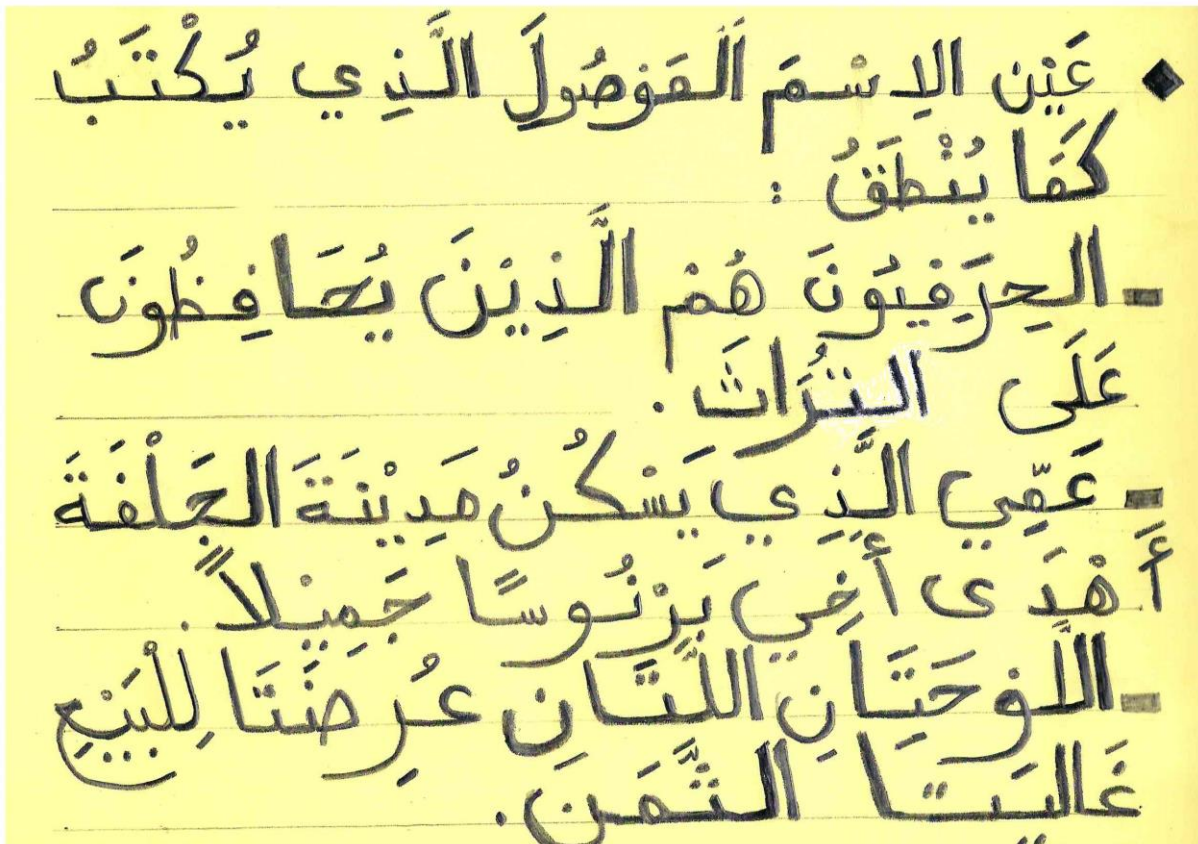 ◆ عَيِّن الاِسْمَ اَلْمَوْصُولَ الَّذِي يُكْتَبُ
كَمَا يُنْطَقُ :
- الحِرَفِيُونَ هُمْ الَّذِيْنَ يُحَافِظُونَ
عَلَى التُرَاثَ .
- عَمِّي الَّذِي يَسْكُنُ مَدِيْنَةَ الجَلْفَةَ
أَهْدَى أَخِي بَرْنُوسًا جَمِيْلاً .
- اللَّوحَتَانِ اللَّتَانِ عُرِضَتَا لِلْبَيْعِ
غَالِيَتَا الثَّمَن .